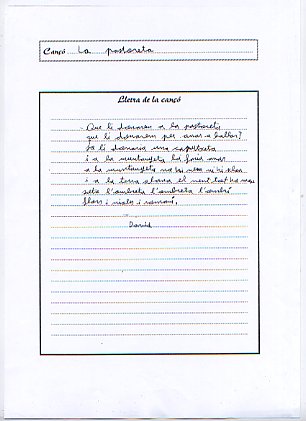 Cançó La pastoreta
Lletra de la cançó
Que li donarem a la pastoreta
que li donarem per anar a ballar?
Ja li donaria una caputxeta
i a la muntanyeta la faria anar
a la muntanyeta no hi neu ni hi plou
i a la terra plana el vent tot ho mou
sota l'ombreta l'ombreta l'ombrí
flors i violes i romaní.
David